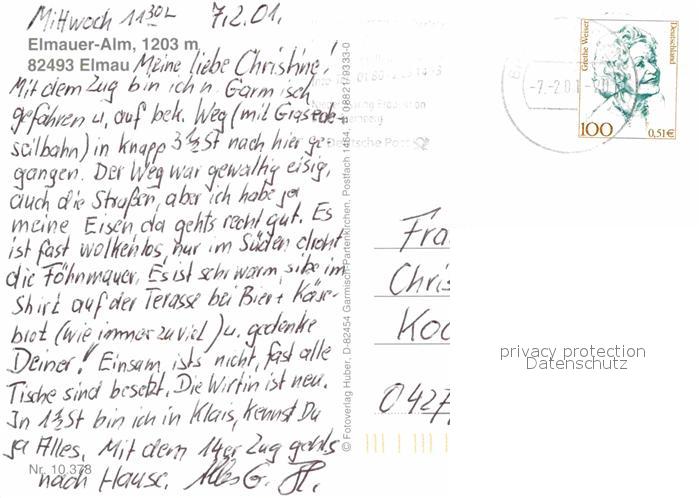 Mittwoch 11 30 h 7.2.01.
Elmauer-Alm, 1203 m
82493 Elmau
Meine liebe Christine!
Mit dem Zug bin ich n. Garmisch
gefahren u. auf bek. Weg (mit
seilbahn) in knapp 3 1/2 St nach hier ge-
gangen. Der Weg war gewaltig eisig,
auch die Straßen, aber ich habe ja
meine Eisen, da gehts recht gut. Es
ist fast wolkenlos, nur im Süden droht
die Föhnmauer. Es ist sehr warm, sitze im
Shirt auf der Terasse bei Bier + Käse-
brot (wie immer zu viel) u. gedenke
Deiner! Einsam ists nicht, fast alle
Tische sind besetzt. Die Wirtin ist neu.
In 1 1/2 St bin ich in Klais, kennst Du
ja Alles. Mit dem 14er Zug gehts
nach Hause. Alles G.
Nr. 10.378
© Fotoverlag Huber, D-82454 Garmisch-Partenkirchen, Postfach 1454, ☎ 08821/9333-0
Deutsche Post
-7.-2.01
Grethe Weiser
Deutschland
100
0,51€
Fra
Chris
Koc
0427
privacy protection
Datenschutz